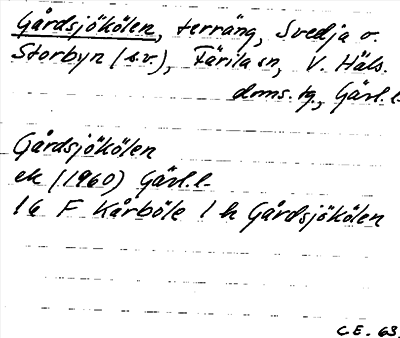 Gårdsjökölen, terräng, Svedja o.
Storbyn (s.v.), Färila sn, V. Häls.
doms.tg., Gävl.l.
Gårdsjökölen
ek (1960) Gävl.l.
16 F Kårböle 1 h Gårdsjökölen
C.E. 63.